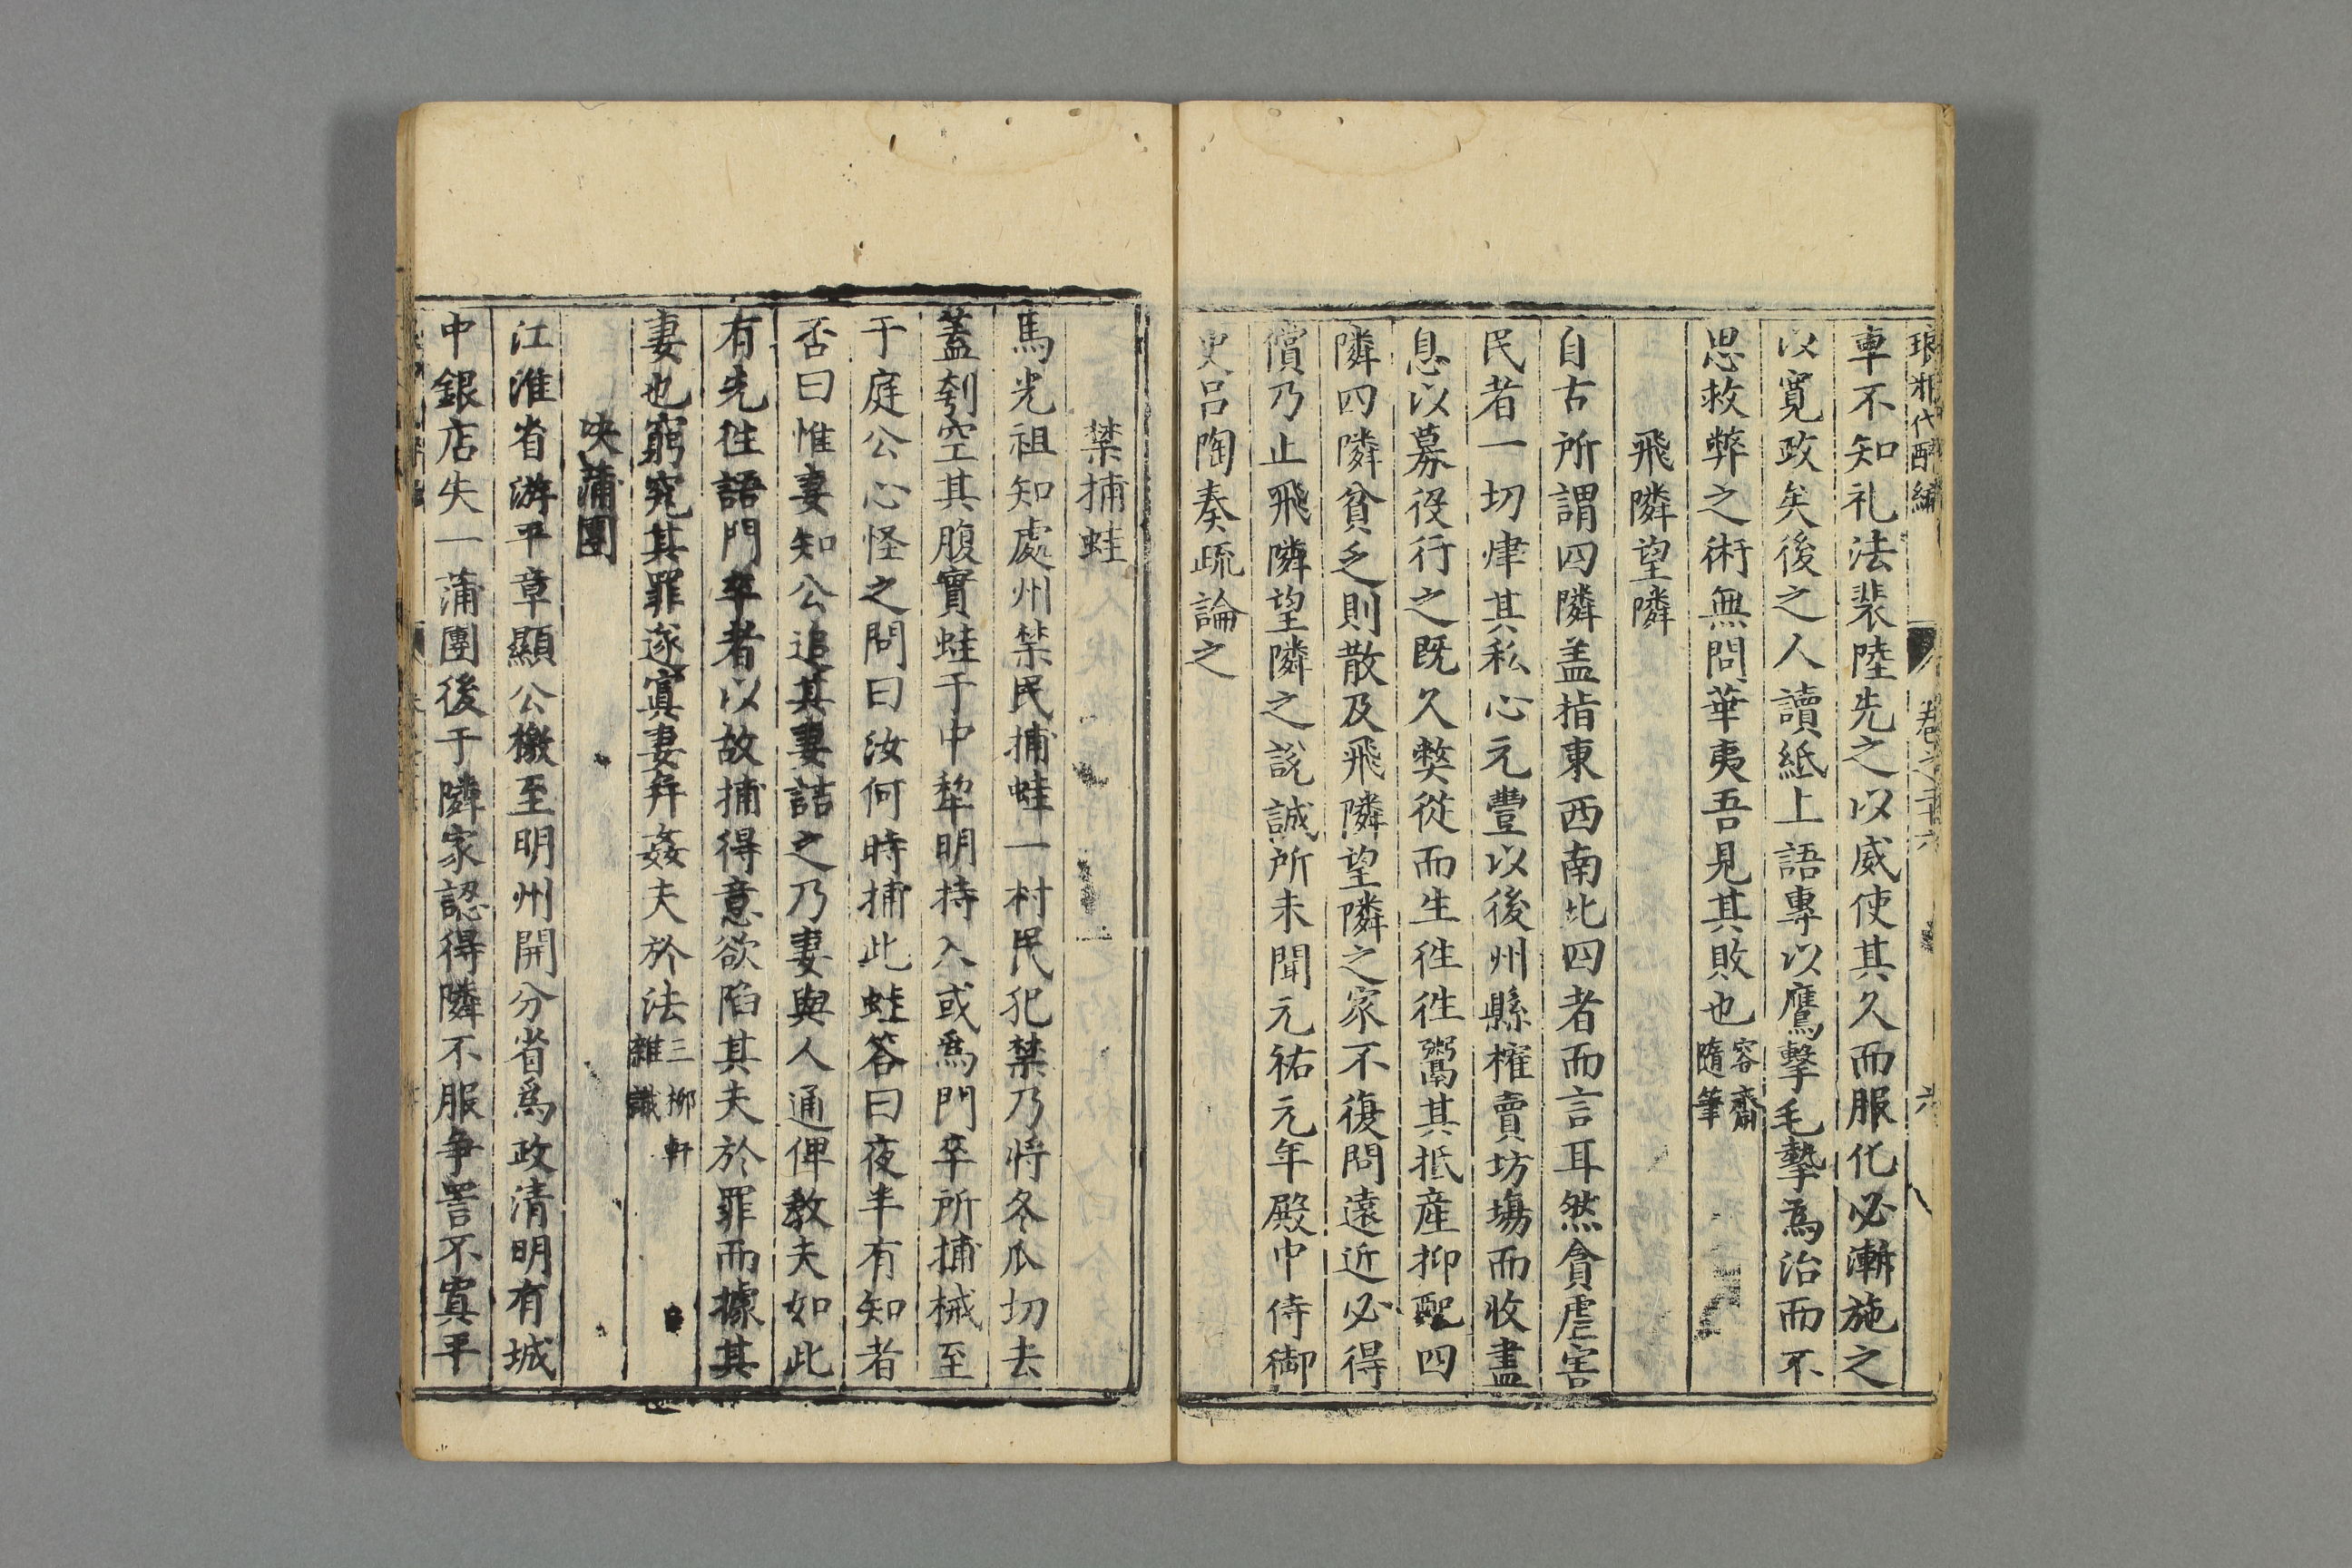 瑯琊代醉編 卷之二十六 六
車不知礼法裴陸先之以威使其久而服化必漸施之
以寬政矣後之人讀紙上語專以鷹擊毛摯為治而不
思救弊之術無問華夷吾見其敗也容齋隨筆
飛隣望隣
自古所謂四隣盖指東西南北四者而言耳然貪虐害
民者一切肂其私心元豐以後州縣榷賣坊塲而收盡
息以募役行之既久弊從而生徃徃鬻其抵產抑配四
隣四隣貧乏則散及飛隣望隣之家不復問遠近必得
償乃止飛隣望隣之說誠所未聞元祐元年殿中侍御
史呂陶奏疏論之
禁捕蛙
馬光祖知處州禁民捕蛙一村民犯禁乃將冬瓜切去
蓋刳空其腹實蛙于中犂明持入或爲門卒所捕械至
于庭公心怪之問曰汝何時捕此蛙答曰夜半有知者
否曰惟妻知公追其妻詰之乃妻與人通俾教夫如此
有先徃語門卒者以故捕得意欲陷其夫於罪而據其
妻也窮究其罪遂寘妻并姦夫於法三柳軒雜識
决蒲團
江淮省游平章顯公檄至明州開分省爲政清明有城
中銀店失一蒲團後于隣家認得隣不服争詈不寘平